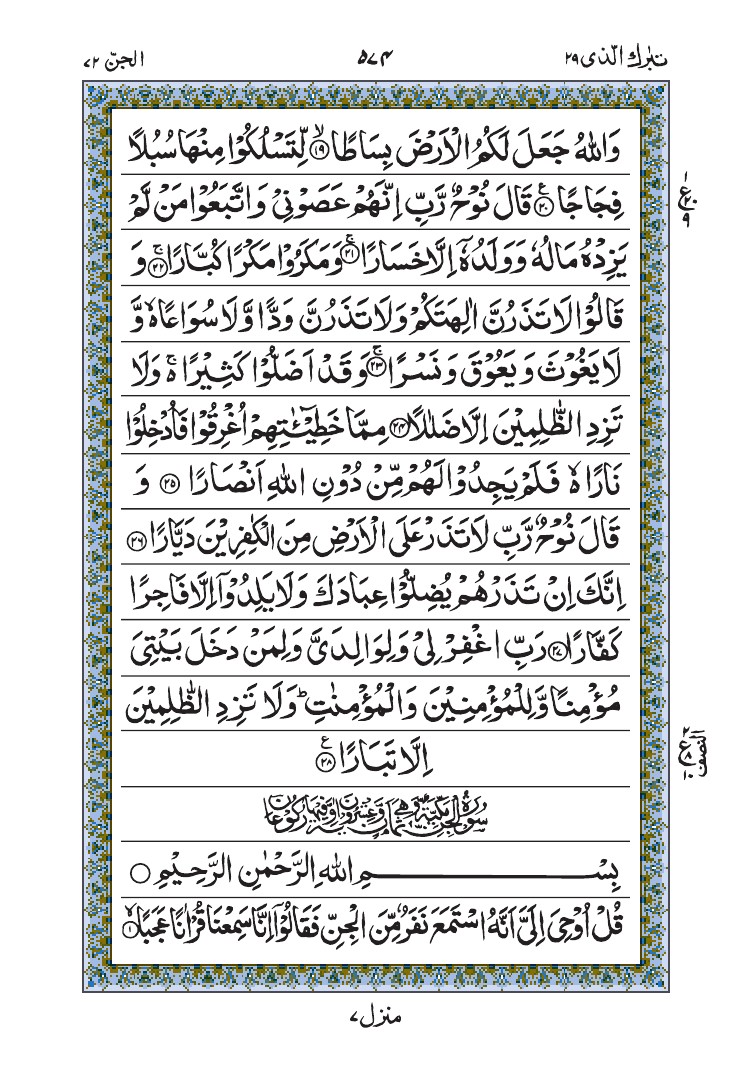 تبٰرك الّذى ٢٩
٥٧٤
الجنّ ٧٢
وَاللّٰهُ جَعَلَ لَكُمُ الْاَرْضَ بِسَاطًا ۙ‏﴿۱۹﴾ لِّتَسْلُكُوْا مِنْهَا سُبُلًا
فِجَاجًا ﴿۲۰﴾ؑ قَالَ نُوْحٌ رَّبِّ اِنَّهُمْ عَصَوْنِىْ وَاتَّبَعُوْا مَنْ لَّمْ
يَزِدْهُ مَالُهٗ وَوَلَدُهٗۤ اِلَّا خَسَارًا ۚ‏﴿۲۱﴾ وَمَكَرُوْا مَكْرًا كُبَّارًا ۚ‏﴿۲۲﴾ وَ
قَالُوْا لَا تَذَرُنَّ اٰلِهَتَكُمْ وَلَا تَذَرُنَّ وَدًّا وَّلَا سُوَاعًا ۙ وَّ
لَا يَغُوْثَ وَيَعُوْقَ وَنَسْرًا ۚ‏﴿۲۳﴾ وَقَدْ اَضَلُّوْا كَثِيْرًا ۚ وَلَا
تَزِدِ الظّٰلِمِيْنَ اِلَّا ضَلٰلًا ﴿۲۴﴾ مِمَّا خَطِيْٓـٰٔتِهِمْ اُغْرِقُوْا فَاُدْخِلُوْا
نَارًا ۙ فَلَمْ يَجِدُوْا لَهُمْ مِّنْ دُوْنِ اللّٰهِ اَنْصَارًا ﴿۲۵﴾ وَ
قَالَ نُوْحٌ رَّبِّ لَا تَذَرْ عَلَى الْاَرْضِ مِنَ الْكٰفِرِيْنَ دَيَّارًا ﴿۲۶﴾
اِنَّكَ اِنْ تَذَرْهُمْ يُضِلُّوْا عِبَادَكَ وَلَا يَلِدُوْۤا اِلَّا فَاجِرًا
كَفَّارًا ﴿۲۷﴾ رَبِّ اغْفِرْ لِىْ وَلِوَالِدَىَّ وَلِمَنْ دَخَلَ بَيْتِىَ
مُؤْمِنًا وَّلِلْمُؤْمِنِيْنَ وَالْمُؤْمِنٰتِ ؕ وَلَا تَزِدِ الظّٰلِمِيْنَ
اِلَّا تَبَارًا ﴿۲۸﴾ؑ
سُوْرَةُ الْجِنِّ مَكِّيَّةٌ وَّهِىَ ثَمَانٌ وَّعِشْرُوْنَ اٰيَةً وَّفِيْهَا رُكُوْعَانِ
بِسْمِ اللّٰهِ الرَّحْمٰنِ الرَّحِيْمِ ○
قُلْ اُوْحِىَ اِلَىَّ اَنَّهُ اسْتَمَعَ نَفَرٌ مِّنَ الْجِنِّ فَقَالُوْۤا اِنَّا سَمِعْنَا قُرْاٰنًا عَجَبًا ۙ‏﴿۱﴾
١
ع
٢٠
٩
٢
ع
٨
النصف
منزل ٧